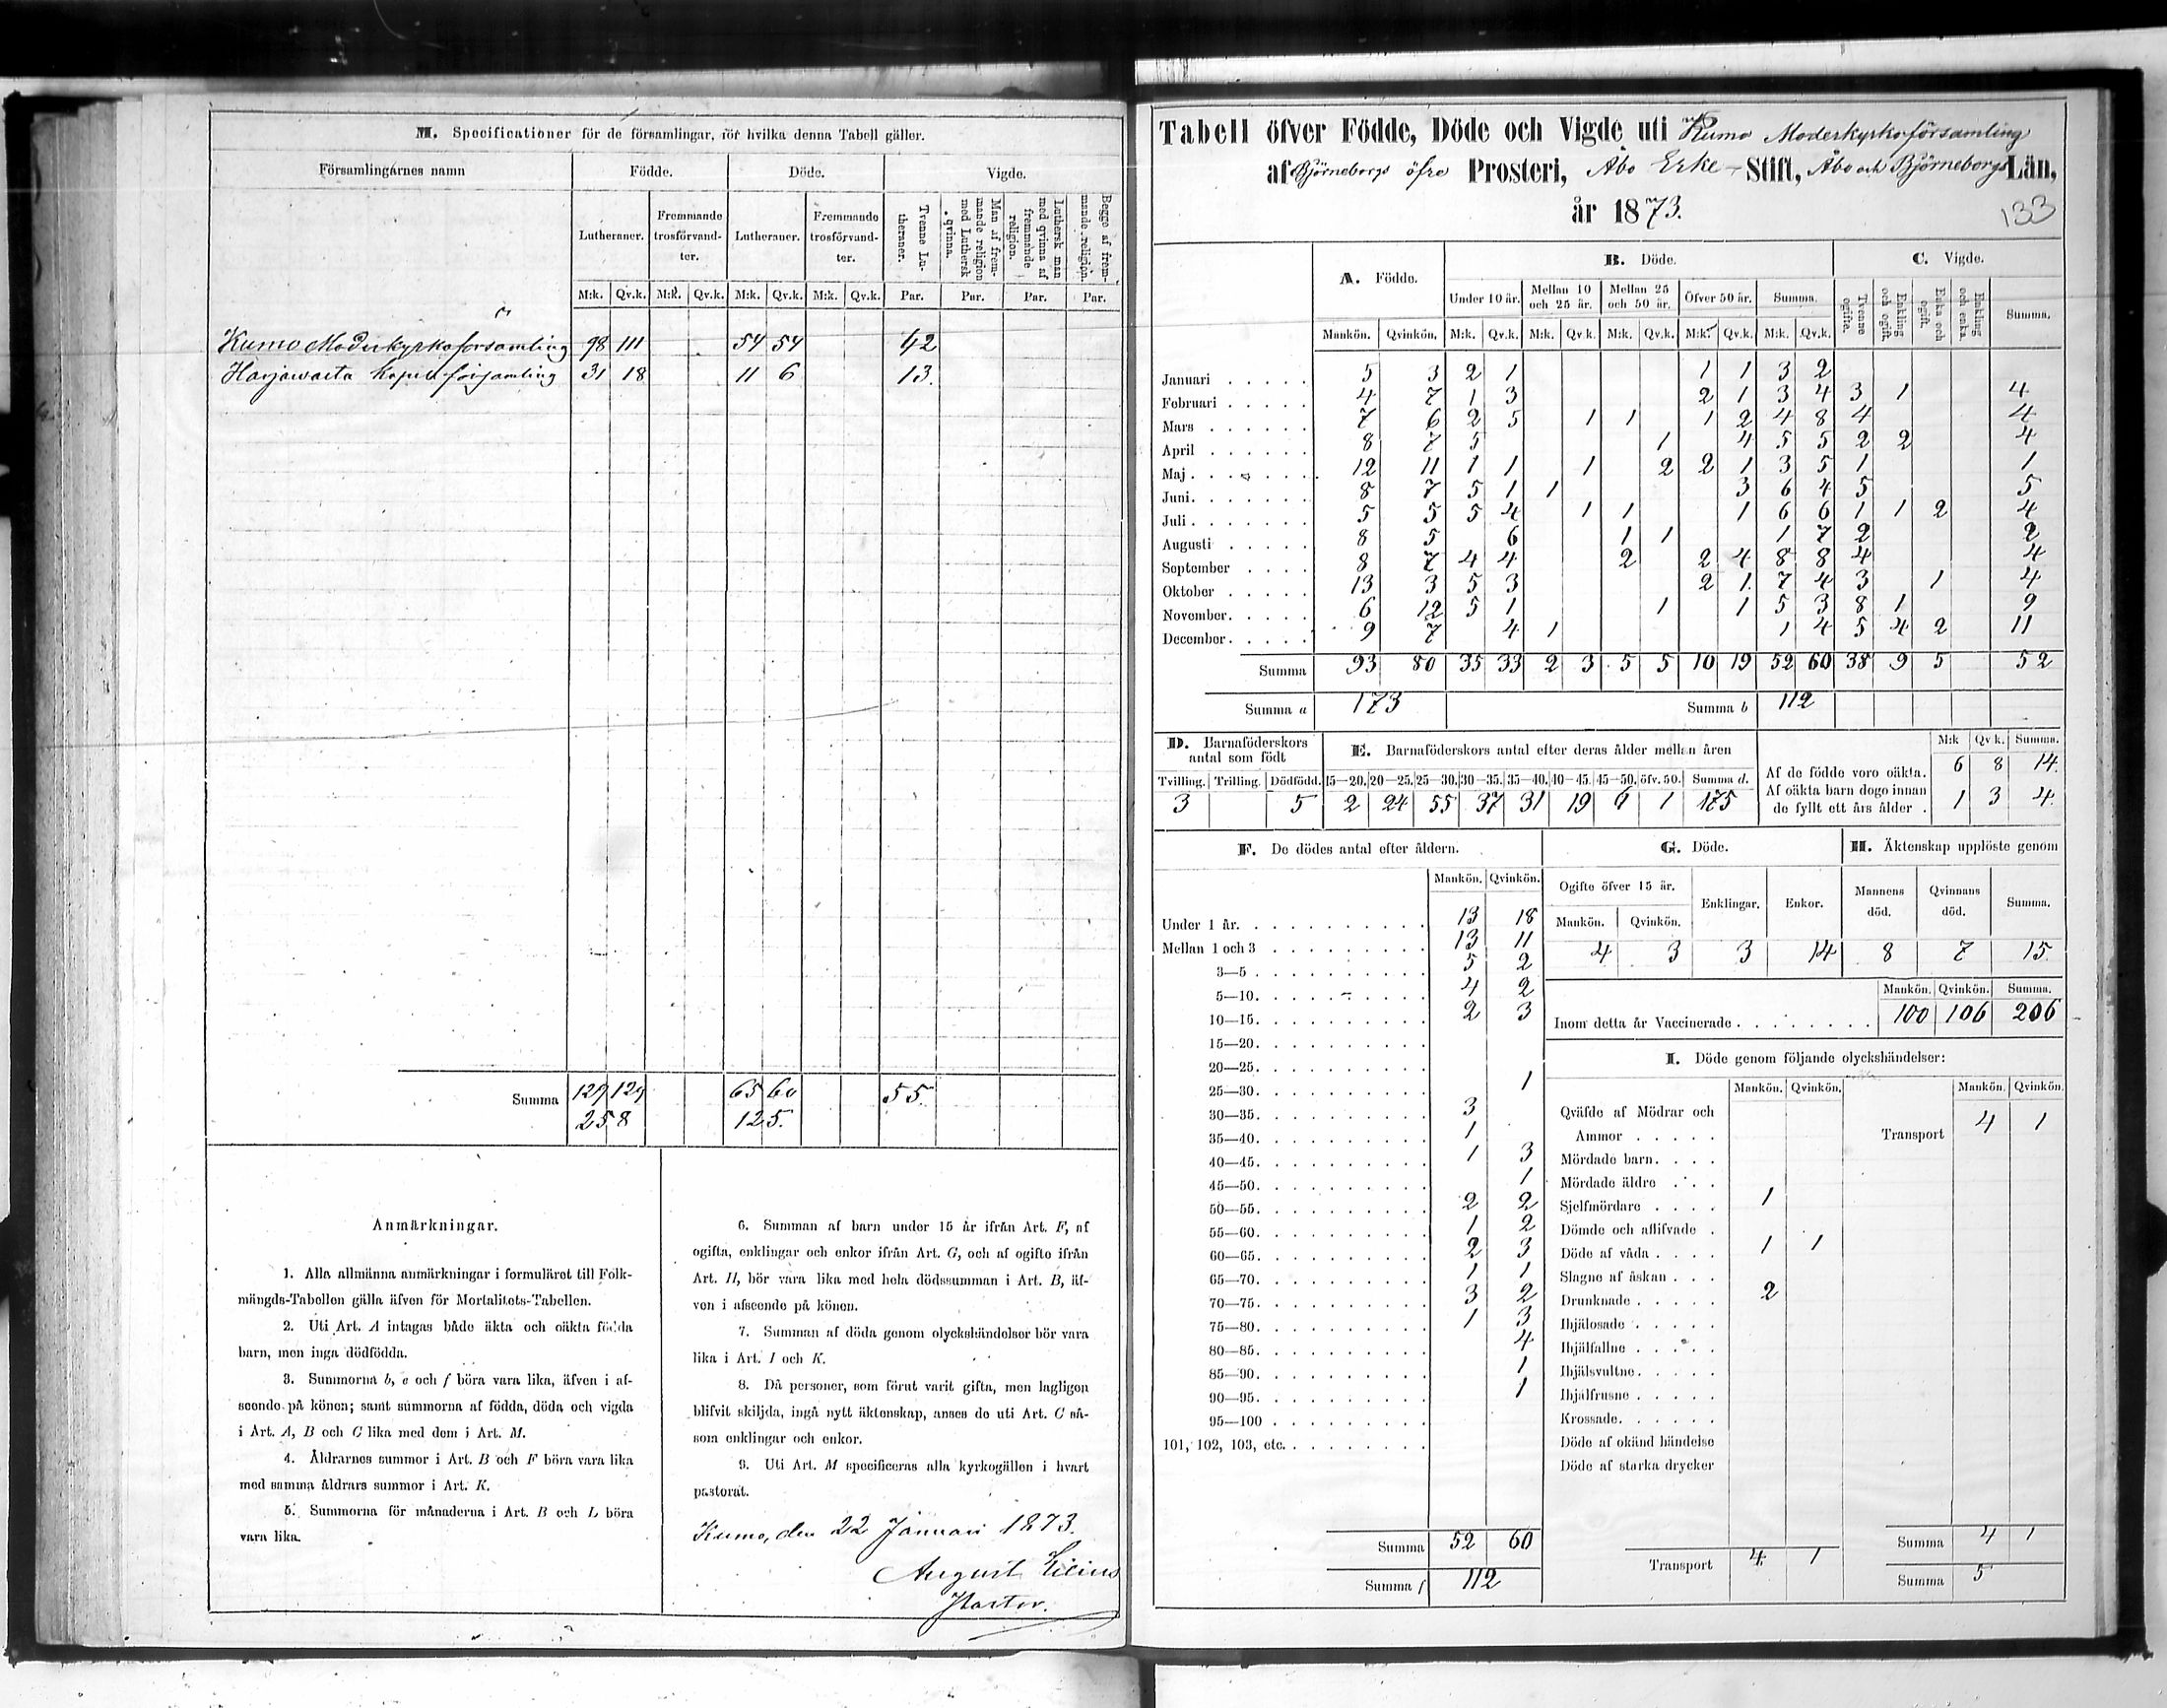 M. Specificationer för de församlingar, för hvilka denna Tabell gäller.
Församlingarnes namn Födde. Döde. Vigde.
Lutheraner. Fremmande trosförvandter. Lutheraner. Fremmande trosförvandter. Tvenne Lutheraner. Man af fremmande religion med Luthersk qvinna. Luthersk man med qvinna af fremmande religion. Begge af fremmande religion.
M:k. Qv.k. M:k. Qv.k. M:k. Qv.k. M:k. Qv.k. Par. Par. Par. Par.
Kumo Moderkyrkoförsamling 98 111 54 54 42
Harjawalta Kapellförsamling 31 18 11 6 13.
Summa 129 129 65 60 55.
258 125.
Anmärkningar.
1. Alla allmänna anmärkningar i formuläret till Folk-
mängds-Tabellen gälla äfven för Mortalitets-Tabellen.
2. Uti Art. A intagas både äkta och oäkta födda
barn, men inga dödfödda.
3. Summorna b, e och f böra vara lika, äfven i af-
seende på könen; samt summorna af födda, döda och vigda
i Art. A, B och C lika med dem i Art. M.
4. Åldrarnes summor i Art. B och F böra vara lika
med samma åldrars summor i Art. K.
5. Summorna för månaderna i Art. B och L böra
vara lika.
6. Summan af barn under 15 år ifrån Art. F, af
ogifta, enklingar och enkor ifrån Art. G, och af ogifte ifrån
Art. H, bör vara lika med hela dödssumman i Art. B, äf-
ven i afseende på könen.
7. Summan af döda genom olyckshändelser bör vara
lika i Art. I och K.
8. Då personer, som förut varit gifta, men lagligen
blifvit skiljda, ingå nytt äktenskap, anses de uti Art. C så-
som enklingar och enkor.
9. Uti Art. M specificeras alla kyrkogällen i hvart
pastorat.
Kumo, den 22 Januari 1873.
August Lilius
Pastor.
Tabell öfver Födde, Döde och Vigde uti Kumo Moderkyrkoförsamling
af Björneborgs öfre Prosteri, Åbo Erke-Stift, Åbo och Björneborgs Län,
år 1873.
133
A. Födde. B. Döde. C. Vigde.
Under 10 år. Mellan 10 och 25 år. Mellan 25 och 50 år. Öfver 50 år. Summa. Tvenne ogifte. Enkling och ogift. Enka och ogift. Enkling och enka. Summa.
Mankön. Qvinkön. M:k. Qv.k. M:k. Qv.k. M:k. Qv.k. M:k. Qv.k. M:k. Qv.k.
Januari 5 3 2 1 1 1 3 2
Februari 4 7 1 3 2 1 3 4 3 1 4
Mars 7 6 2 5 1 1 1 2 4 8 4 4
April 8 7 5 1 4 5 5 2 2 4
Maj 12 11 1 1 1 2 2 1 3 5 1 1
Juni 8 7 5 1 1 3 6 4 5 5
Juli 5 5 5 4 1 1 1 6 6 1 1 2 4
Augusti 8 5 6 1 1 1 7 2 2
September 8 7 4 4 2 2 4 8 8 4 4
Oktober 13 3 5 3 2 1 7 4 3 1 4
November 6 12 5 1 1 1 5 3 8 1 9
December 9 7 4 1 1 4 5 4 2 11
Summa 93 80 35 33 2 3 5 5 10 19 52 60 38 9 5 52
Summa a 173 Summa b 112
D. Barnaföderskors antal som födt
Tvilling. Trilling. Dödfödd.
3 5
E. Barnaföderskors antal efter deras ålder mellan åren
15—20. 20—25. 25—30. 30—35. 35—40. 40—45. 45—50. öfv. 50. Summa d.
2 24 55 37 31 19 6 1 175
M:k Qv.k. Summa.
Af de födde voro oäkta. 6 8 14.
Af oäkta barn dogo innan
de fyllt ett års ålder . 1 3 4.
F. De dödes antal efter åldern.
Mankön. Qvinkön.
Under 1 år. 13 18
Mellan 1 och 3 13 11
3—5 5 2
5—10. 4 2
10—15. 2 3
15—20.
20—25.
25—30. 1
30—35. 3
35—40. 1
40—45. 1 3
45—50. 1
50—55. 2 2
55—60. 1 2
60—65. 2 3
65—70. 1 1
70—75. 3 2
75—80. 1 3
80—85. 4
85—90. 1
90—95. 1
95—100
101, 102, 103, etc.
Summa 52 60
Summa f 112
G. Döde.
Ogifte öfver 15 år. Enklingar. Enkor.
Mankön. Qvinkön.
4 3 3 14
H. Äktenskap upplöste genom
Mannens död. Qvinnans död. Summa.
8 7 15.
Mankön. Qvinkön. Summa.
Inom detta år Vaccinerade 100 106 206
I. Döde genom följande olyckshändelser:
Mankön. Qvinkön. Mankön. Qvinkön.
Qväfde af Mödrar och
Ammor
Mördade barn.
Mördade äldre
Sjelfmördare 1
Dömde och aflifvade
Döde af våda 1 1
Slagne af åskan
Drunknade 2
Ihjälosade
Ihjälfallne
Ihjälsvultne
Ihjälfrusne
Krossade.
Döde af okänd händelse
Döde af starka drycker
Transport 4 1
Transport 4 1
Summa 4 1
Summa 5